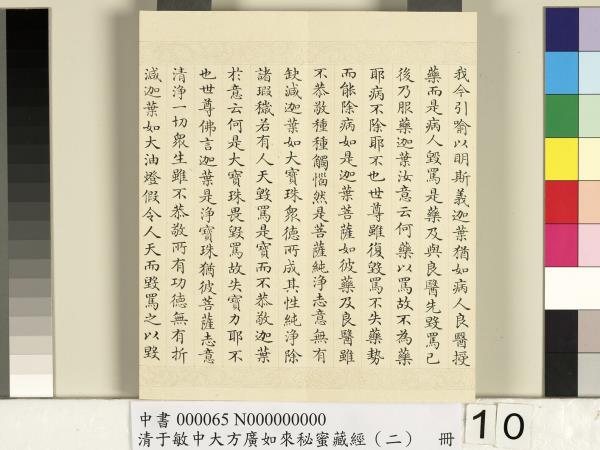 我今引喻以明斯義迦葉猶如病人良醫授
藥而是病人毀罵是藥及與良醫先毀罵已
後乃服藥迦葉汝意云何藥以罵故不為藥
耶病不除耶不也世尊雖復毀罵不失藥勢
而能除病如是迦葉菩薩如彼藥及良醫雖
不恭敬種種觸惱然是菩薩純淨志意無有
缺減迦葉如大寶珠眾德所成其性純淨除
諸瑕穢若有人天毀罵是寶而不恭敬迦葉
於意云何是大寶珠畏毀罵故失寶力耶不
也世尊佛言迦葉是淨寶珠猶彼菩薩志意
清淨一切眾生雖不恭敬所有功德無有折
減迦葉如大油燈假令人天而毀罵之以毀
中書 000065 N000000000
清于敏中大方廣如來秘蜜藏經（二） 冊
10